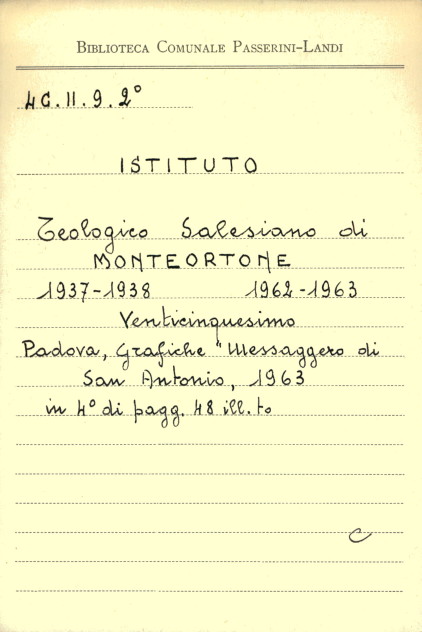 BIBLIOTECA COMUNALE PASSERINI-LANDI
4C.II.9.2°
ISTITUTO
Teologico Salesiano di
MONTEORTONE
1937-1938 1962-1963
Venticinquesimo
Padova, Grafiche "Messaggero di
San Antonio, 1963
in 4° di pagg. 48 ill.to
C